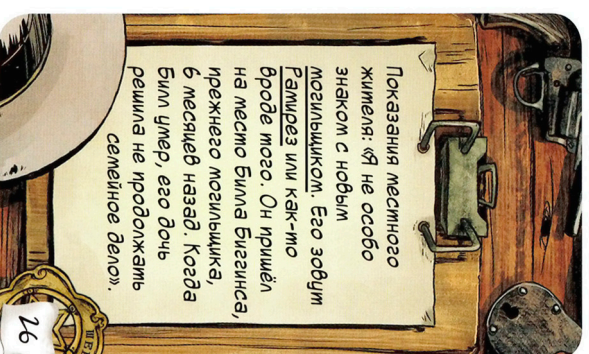 Показания местного
жителя: «Я не особо
знаком с новым
могильщиком. Его зовут
Рамирез или как-то
вроде того. Он пришёл
на место Билла Биггинса,
прежнего могильщика,
6 месяцев назад. Когда
Билл умер, его дочь
решила не продолжать
семейное дело».
26